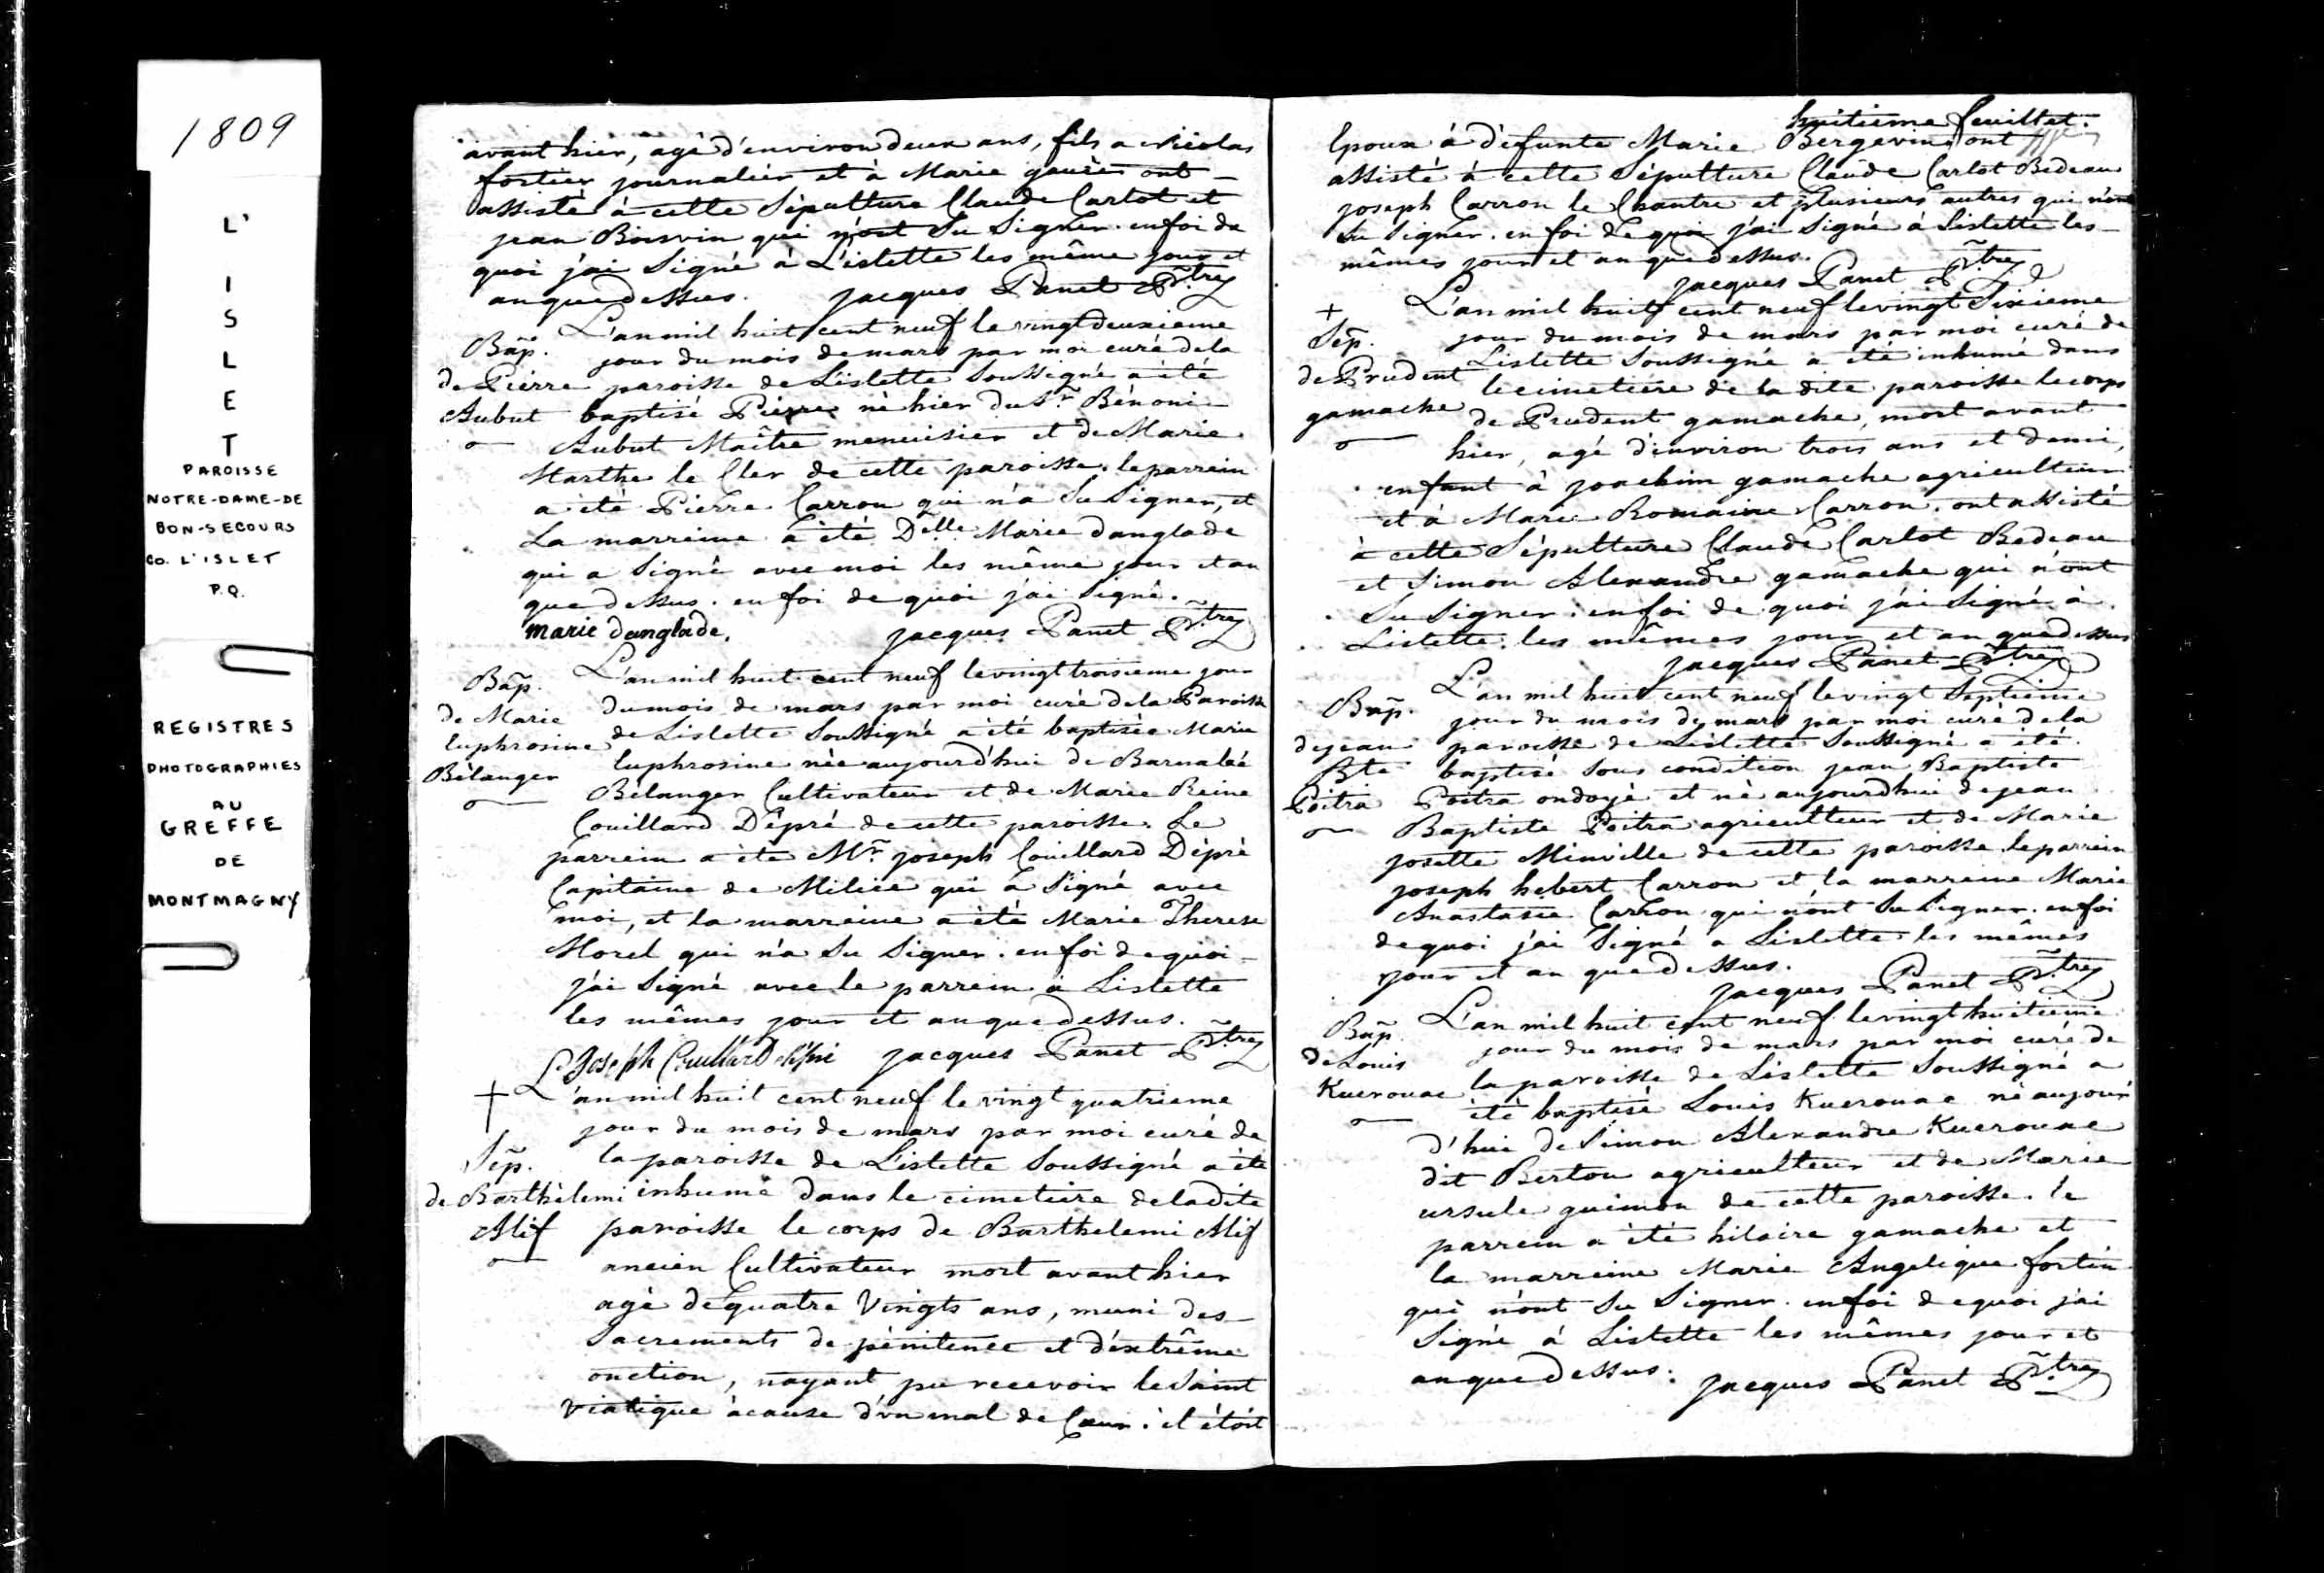 1809
L'
I
S
L
E
T
PAROISSE
NOTRE-DAME-DE
BON-SECOURS
CO. L'ISLET
P.Q.
REGISTRES
PHOTOGRAPHIES
AU
GREFFE
DE
MONTMAGNY
avant hier, agé d'environ deux ans, fils a Nicolas
fortier journalier et à Marie ont
assisté à cette Sépulture Claude Carlot et
jean Boisvin qui n'ont Su Signer. en foi de
quoi j'ai Signé à L'islette les même jour et
an que dessus. jacques Panet Ptre
L'an mil huit cent neuf le vingt deuxieme
Bap. jour du mois de mars par moi curé de la
de Pierre paroisse de Lislette Soussigné a été
Aubut baptisé Pierre né hier du Sr. Bénoni
Aubut Maître menuisier et de Marie
Marthe le Cler de cette paroisse. le parrein
a été Pierre Carron qui n'a Su Signer, et
La marreine a été Delle. Marie danglade
qui a Signé avec moi les même jour et an
que dessus. en foi de quoi j'ai Signé.
marie danglade. jacques Panet Ptre
L'an mil huit cent neuf le vingt troisieme jour
Bap. du mois de mars par moi curé de la Paroisse
de Marie de Lislette Soussigné a été baptisée Marie
Euphrosine Euphrosine née aujourd'hui de Barnabé
Bélanger Bélanger Cultivateur et de Marie Reine
Couillard Dépré de cette paroisse. Le
parrein a été Mr. joseph Couillard Dépré
Capitaine de Milice qui a Signé avec
moi, et la marreine a été Marie Therese
Morel qui n'a Su Signer. en foi de quoi
j'ai Signé avec le parrein à Lislette
les mêmes jour et an que dessus.
Joseph Couillard jacques Panet Ptre
+ L'an mil huit cent neuf le vingt quatrieme
jour du mois de mars par moi curé de
Sep. la paroisse de L'islette Soussigné a été
de Barthélemi inhumé dans le cimetiere de la dite
Mif paroisse le corps de Barthelemi Mif
ancien Cultivateur mort avant hier
agé de quatre Vingts ans, muni des
Sacrements de pénitence et d'extrême
onction, nayant pu recevoir le Saint
Viatique à cause d'un mal de Cœur. il étoit
huitieme feuillet.
Epoux à défunte Marie Bergevin. ont
assisté à cette Sépulture Claude Carlot Bedeau
joseph Carron le Chantre et plusieurs autres qui n'ont
Su Signer. en foi de quoi j'ai Signé à Lislette les
mêmes jour et an que dessus.
jacques Panet Ptre
+ L'an mil huit cent neuf le vingt Sixieme
Sep. jour du mois de mars par moi curé de
Lislette Soussigné a été inhumé dans
de Prudent le cimetiere de la dite paroisse le corps
gamache de Prudent gamache, mort avant
hier, agé d'environ trois ans et demi,
enfant à joachim gamache agriculteur
et à Marie Romaine Carron. ont assisté
à cette Sépulture Claude Carlot Bedeau
et Simon Alexandre gamache qui n'ont
Su Signer. en foi de quoi j'ai Signé à
Lislette les mêmes jour et an que dessus
jacques Panet Ptre
L'an mil huit cent neuf le vingt Septieme
Bap. jour du mois de mars par moi curé de la
de jean paroisse de Lislette Soussigné a été
Bte baptisé Sous condition jean Baptiste
Poitra Poitra ondoyé et né aujourdhui de jean
Baptiste Poitra agriculteur et de Marie
josette Minville de cette paroisse. le parrein
joseph hebert Carron et la marreine Marie
Anastasie Carron qui n'ont Su Signer. en foi
de quoi j'ai Signé a Lislette les mêmes
jour et an que dessus.
jacques Panet Ptre
L'an mil huit cent neuf le vingt huitieme
Bap. jour du mois de mars par moi curé de
de Louis la paroisse de Lislette Soussigné a
Kuerouac été baptisé Louis Kuerouac né aujour
d'hui de Simon Alexandre Kuerouac
dit Berton agriculteur et de Marie
ursule guimon de cette paroisse. le
parrein a été hilaire gamache et
la marreine Marie Angelique fortin
qui n'ont Su Signer. en foi de quoi j'ai
Signé à Lislette les mêmes jour et
an que dessus. jacques Panet Ptre